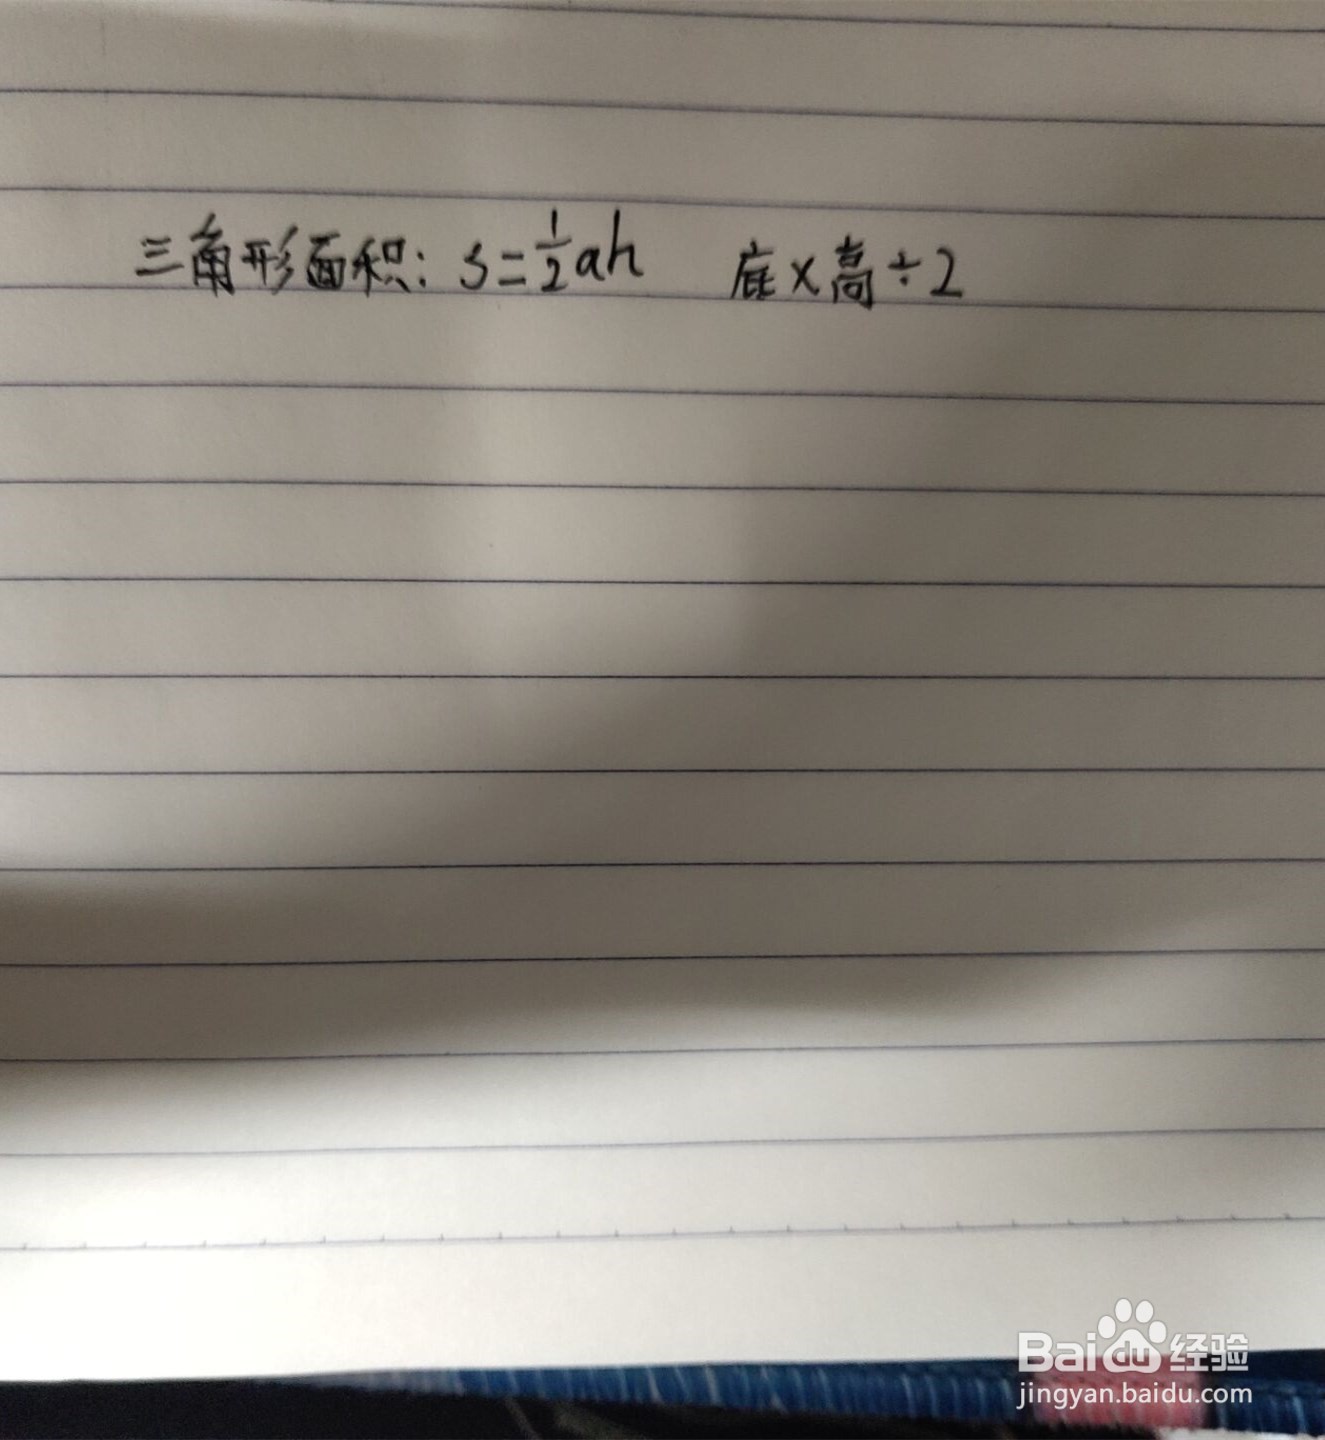 三角形面积: S=½ah 底×高÷2
Baidu 经验
jingyan.baidu.com